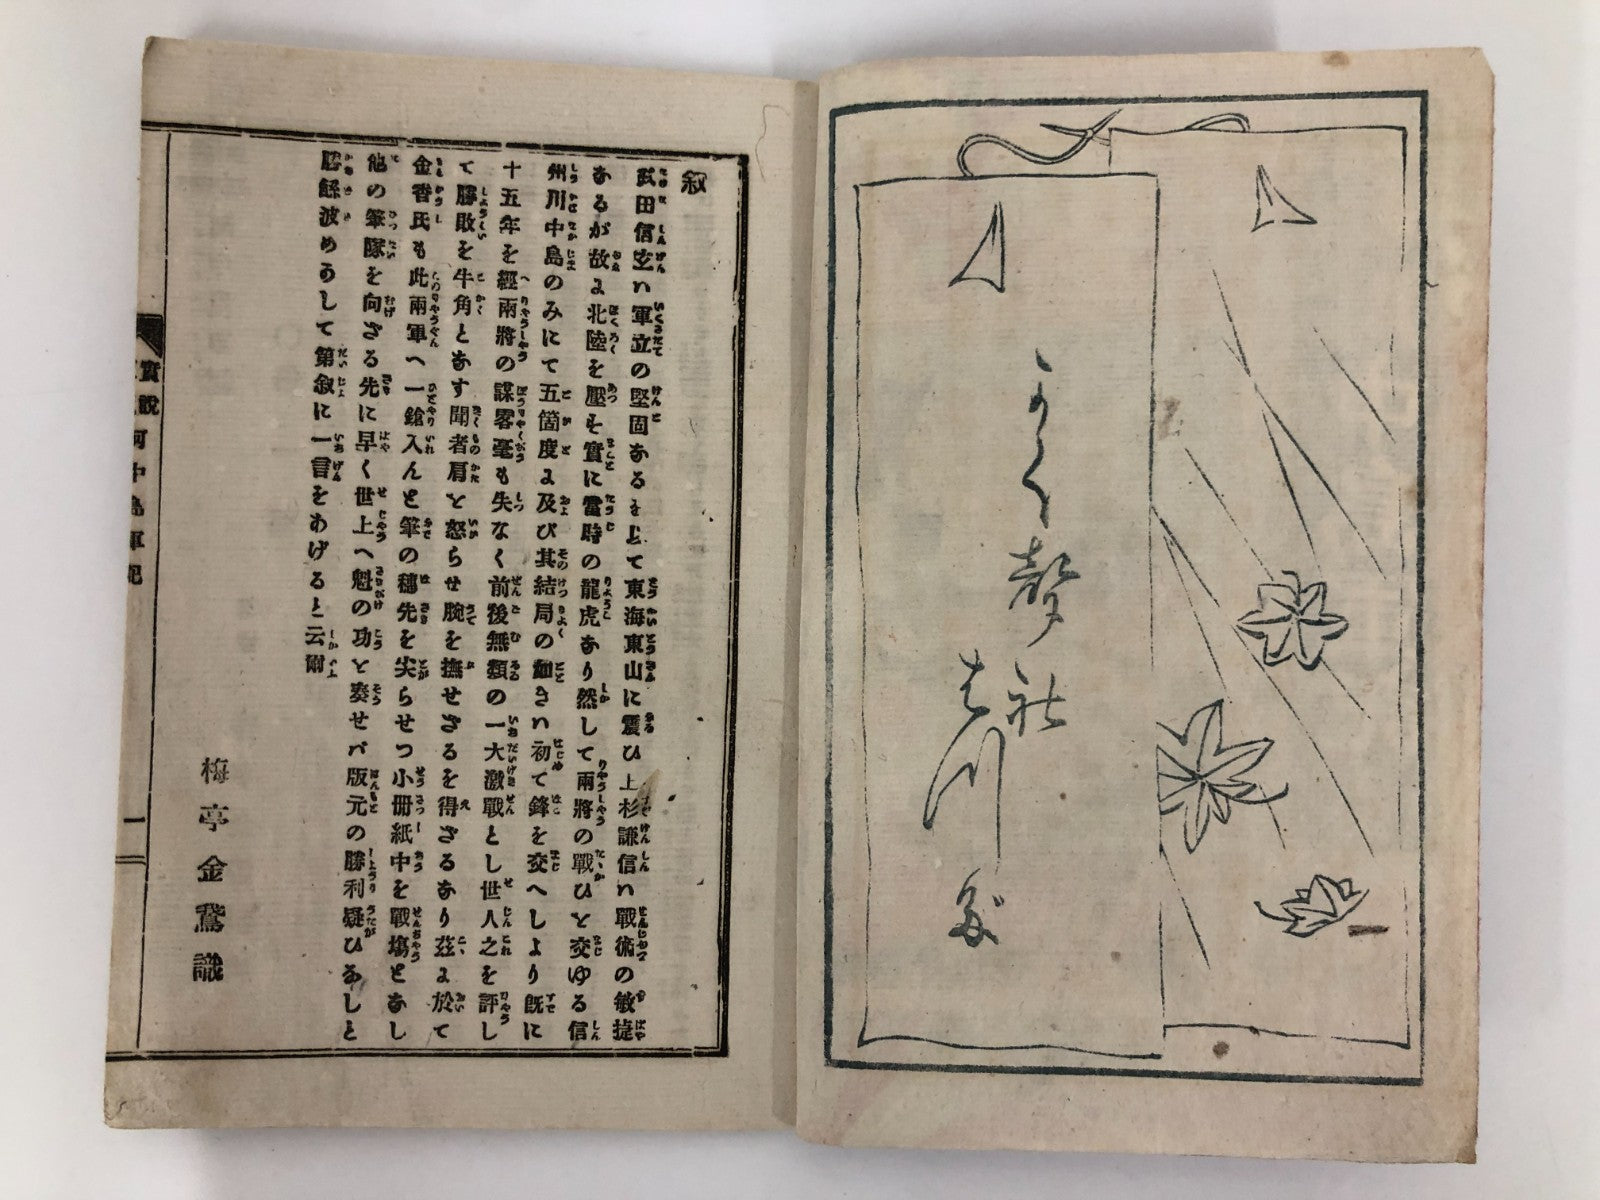 叙
武田信玄ハ軍立の堅固あるを以て東海東山に震ひ上杉謙信ハ戦術の敏捷
あるが故に北陸を壓す實に當時の龍虎あり然して兩將の戰ひを交ゆる信
州川中島のみにて五箇度に及び其結局の働きハ初て鋒を交へしより既に
十五年を經兩將の謀畧毫も失なく前後無類の一大激戰とし世人之を評し
て勝敗を牛角となす聞者肩を怒らせ腕を撫せざるを得ざるなり茲に於て
金香氏も此兩軍へ一鎗入んと筆の穗先を尖らせつ小冊紙中を戰塲となし
他の筆隊を向ざる先に早く世上へ魁の功を奏せバ版元の勝利疑ひなしと
勝餘波めかして第叙に一言をあげると云爾
梅亭金鵞識
實說
河中島軍記
一
社